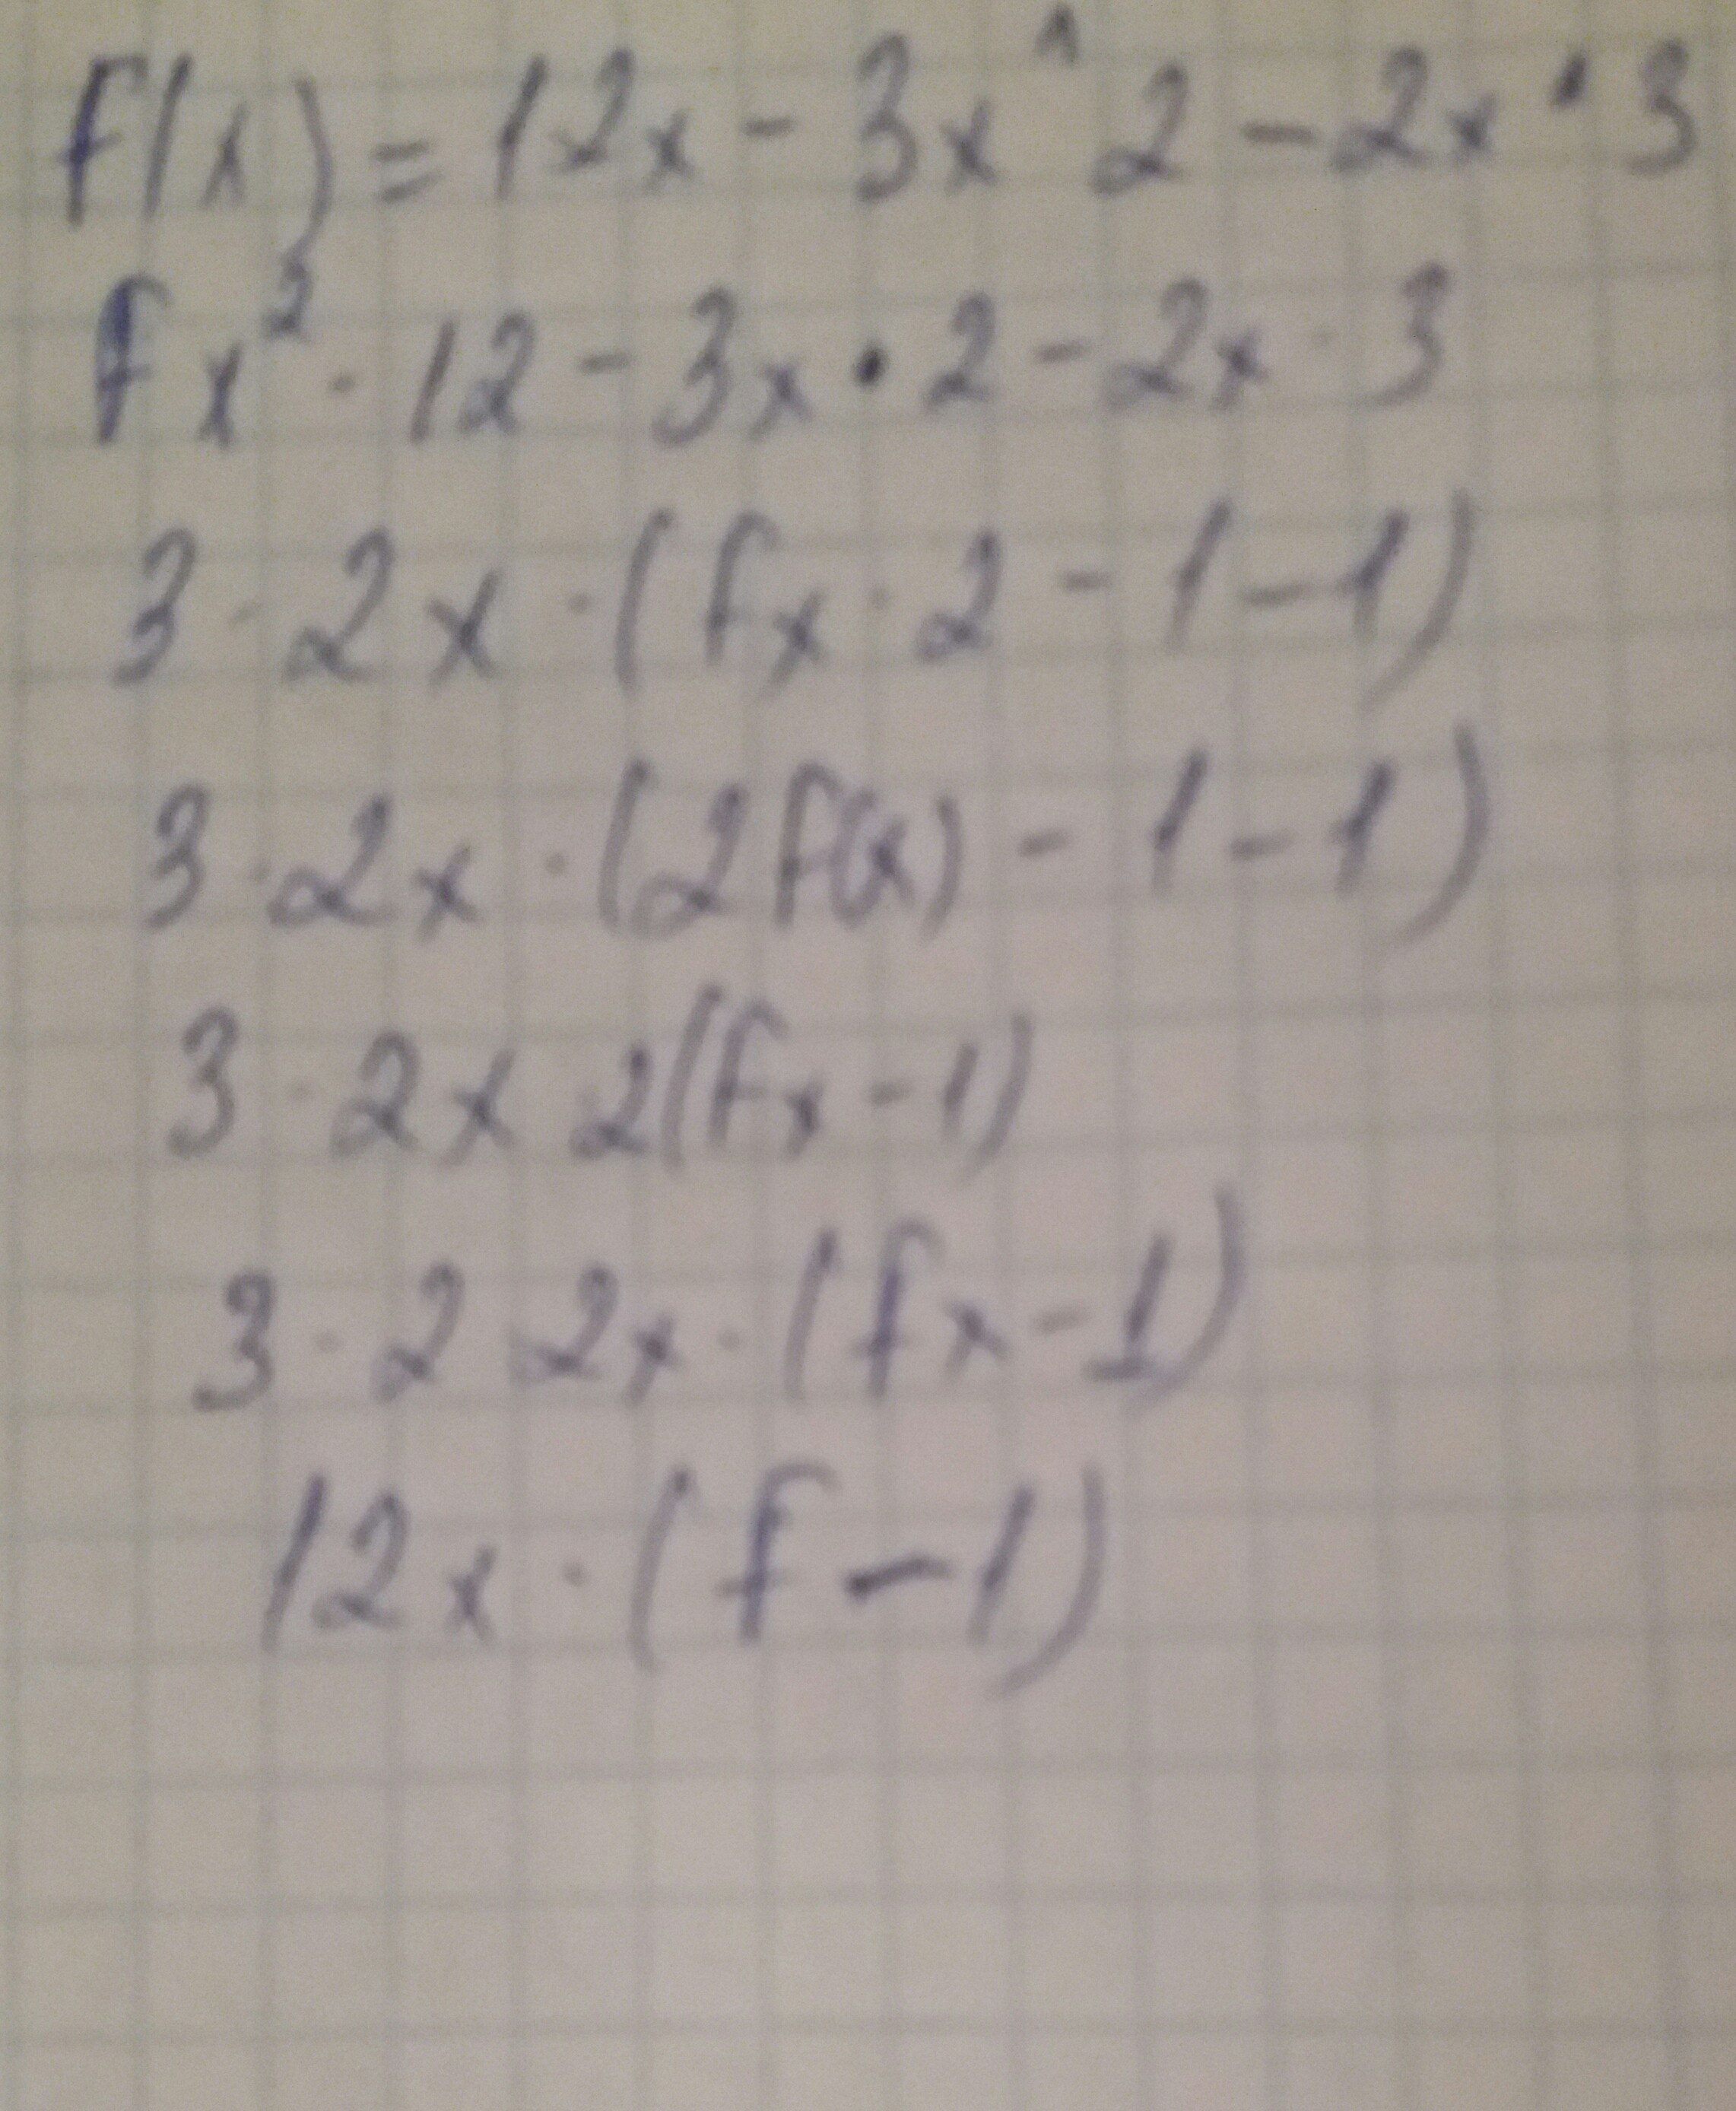 f(x) = 12x - 3x ^ 2 - 2x · 3
fx² · 12 - 3x · 2 - 2x · 3
3 · 2x · (fx · 2 - 1 - 1)
3 · 2x · (2f(x) - 1 - 1)
3 · 2x 2(fx - 1)
3 · 2 2x · (fx - 1)
12x · (f - 1)